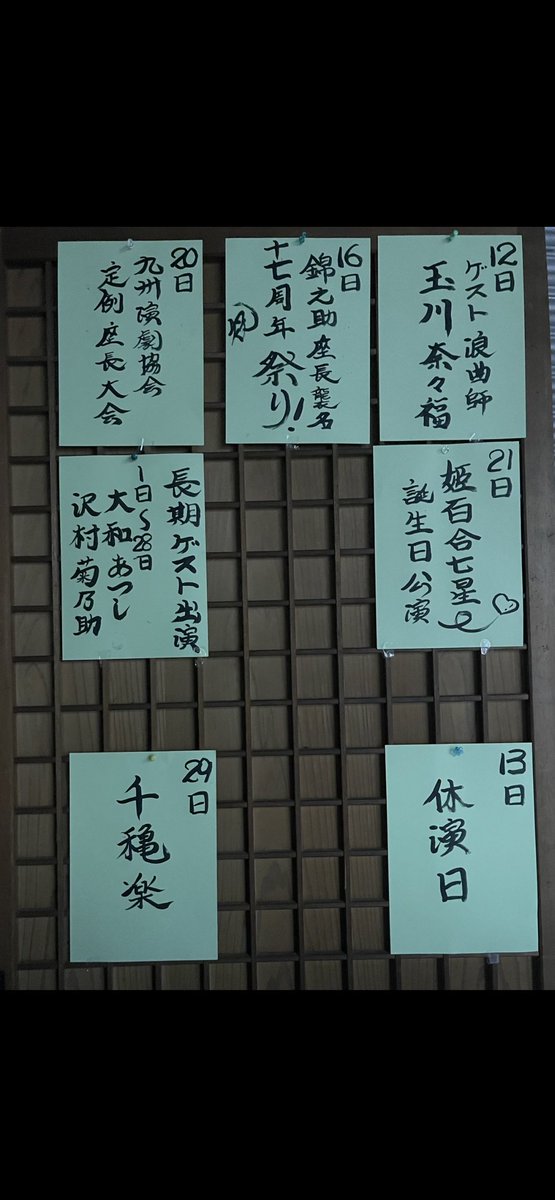 12日
ゲスト浪曲師
玉川奈々福
16日
錦之助座長襲名
十七周年祭り!
20日
九州演劇協会
定例座長大会
21日
姫百合七星
誕生日公演
長期ゲスト出演
1日~28日
大和あつし
沢村菊乃助
13日
休演日
29日
千穐楽